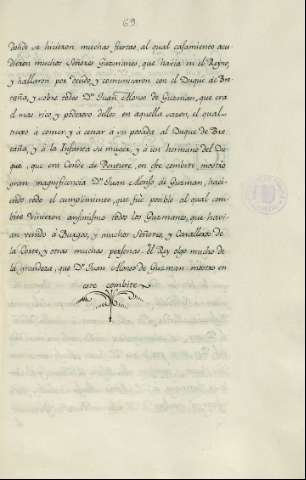 69
donde se hicieron muchas fiestas, al qual casamiento acu-
dieron muchos Señores Guzmanes, que havia en el Reyno,
y hallaron por deudo, y comunicaron con el Duque de Bre-
taña, y sobre todos Dn. Juan Alonso de Guzman, que era
el mas rico, y poderoso dellos en aquella sazon, el qual
truxo á comer, y á cenar á su posada al Duque de Bre-
taña, y á la Infanta su muger, y á un hermano del Du-
que, que era Conde de en este combite mostró
gran magnificencia Dn. Juan Alonso de Guzman, haci-
endo todo el cumplimiento, que fue posible al qual com-
bite vinieron assimismo todos los Guzmanes, que havi-
an venido á Burgos, y muchos Señores, y Cavalleros de
la Corte, y otras muchas personas. El Rey olgo mucho de
la grandeza, que Dn. Juan Alonso de Guzman mostró en
este combite